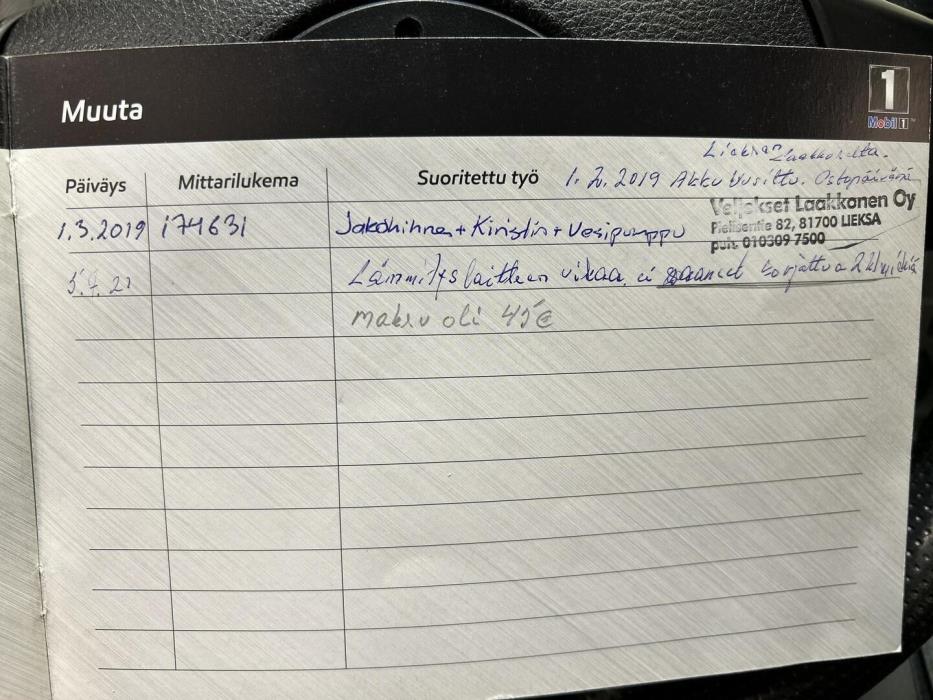 Muuta
1
Mobil 1
Lieksan Laakkoselta.
Päiväys Mittarilukema Suoritettu työ 1.2.2019 Akku Uusittu. Ostopäivänä
Veljekset Laakkonen Oy
Pielisentie 82, 81700 LIEKSA
puh. 010309 7500
1.3.2019 174631 Jakohihna + Kiristin + Vesipumppu
5.4.21 Lämmityslaitteen vikaa, ei saaneet korjattua 2
maksu oli 45€